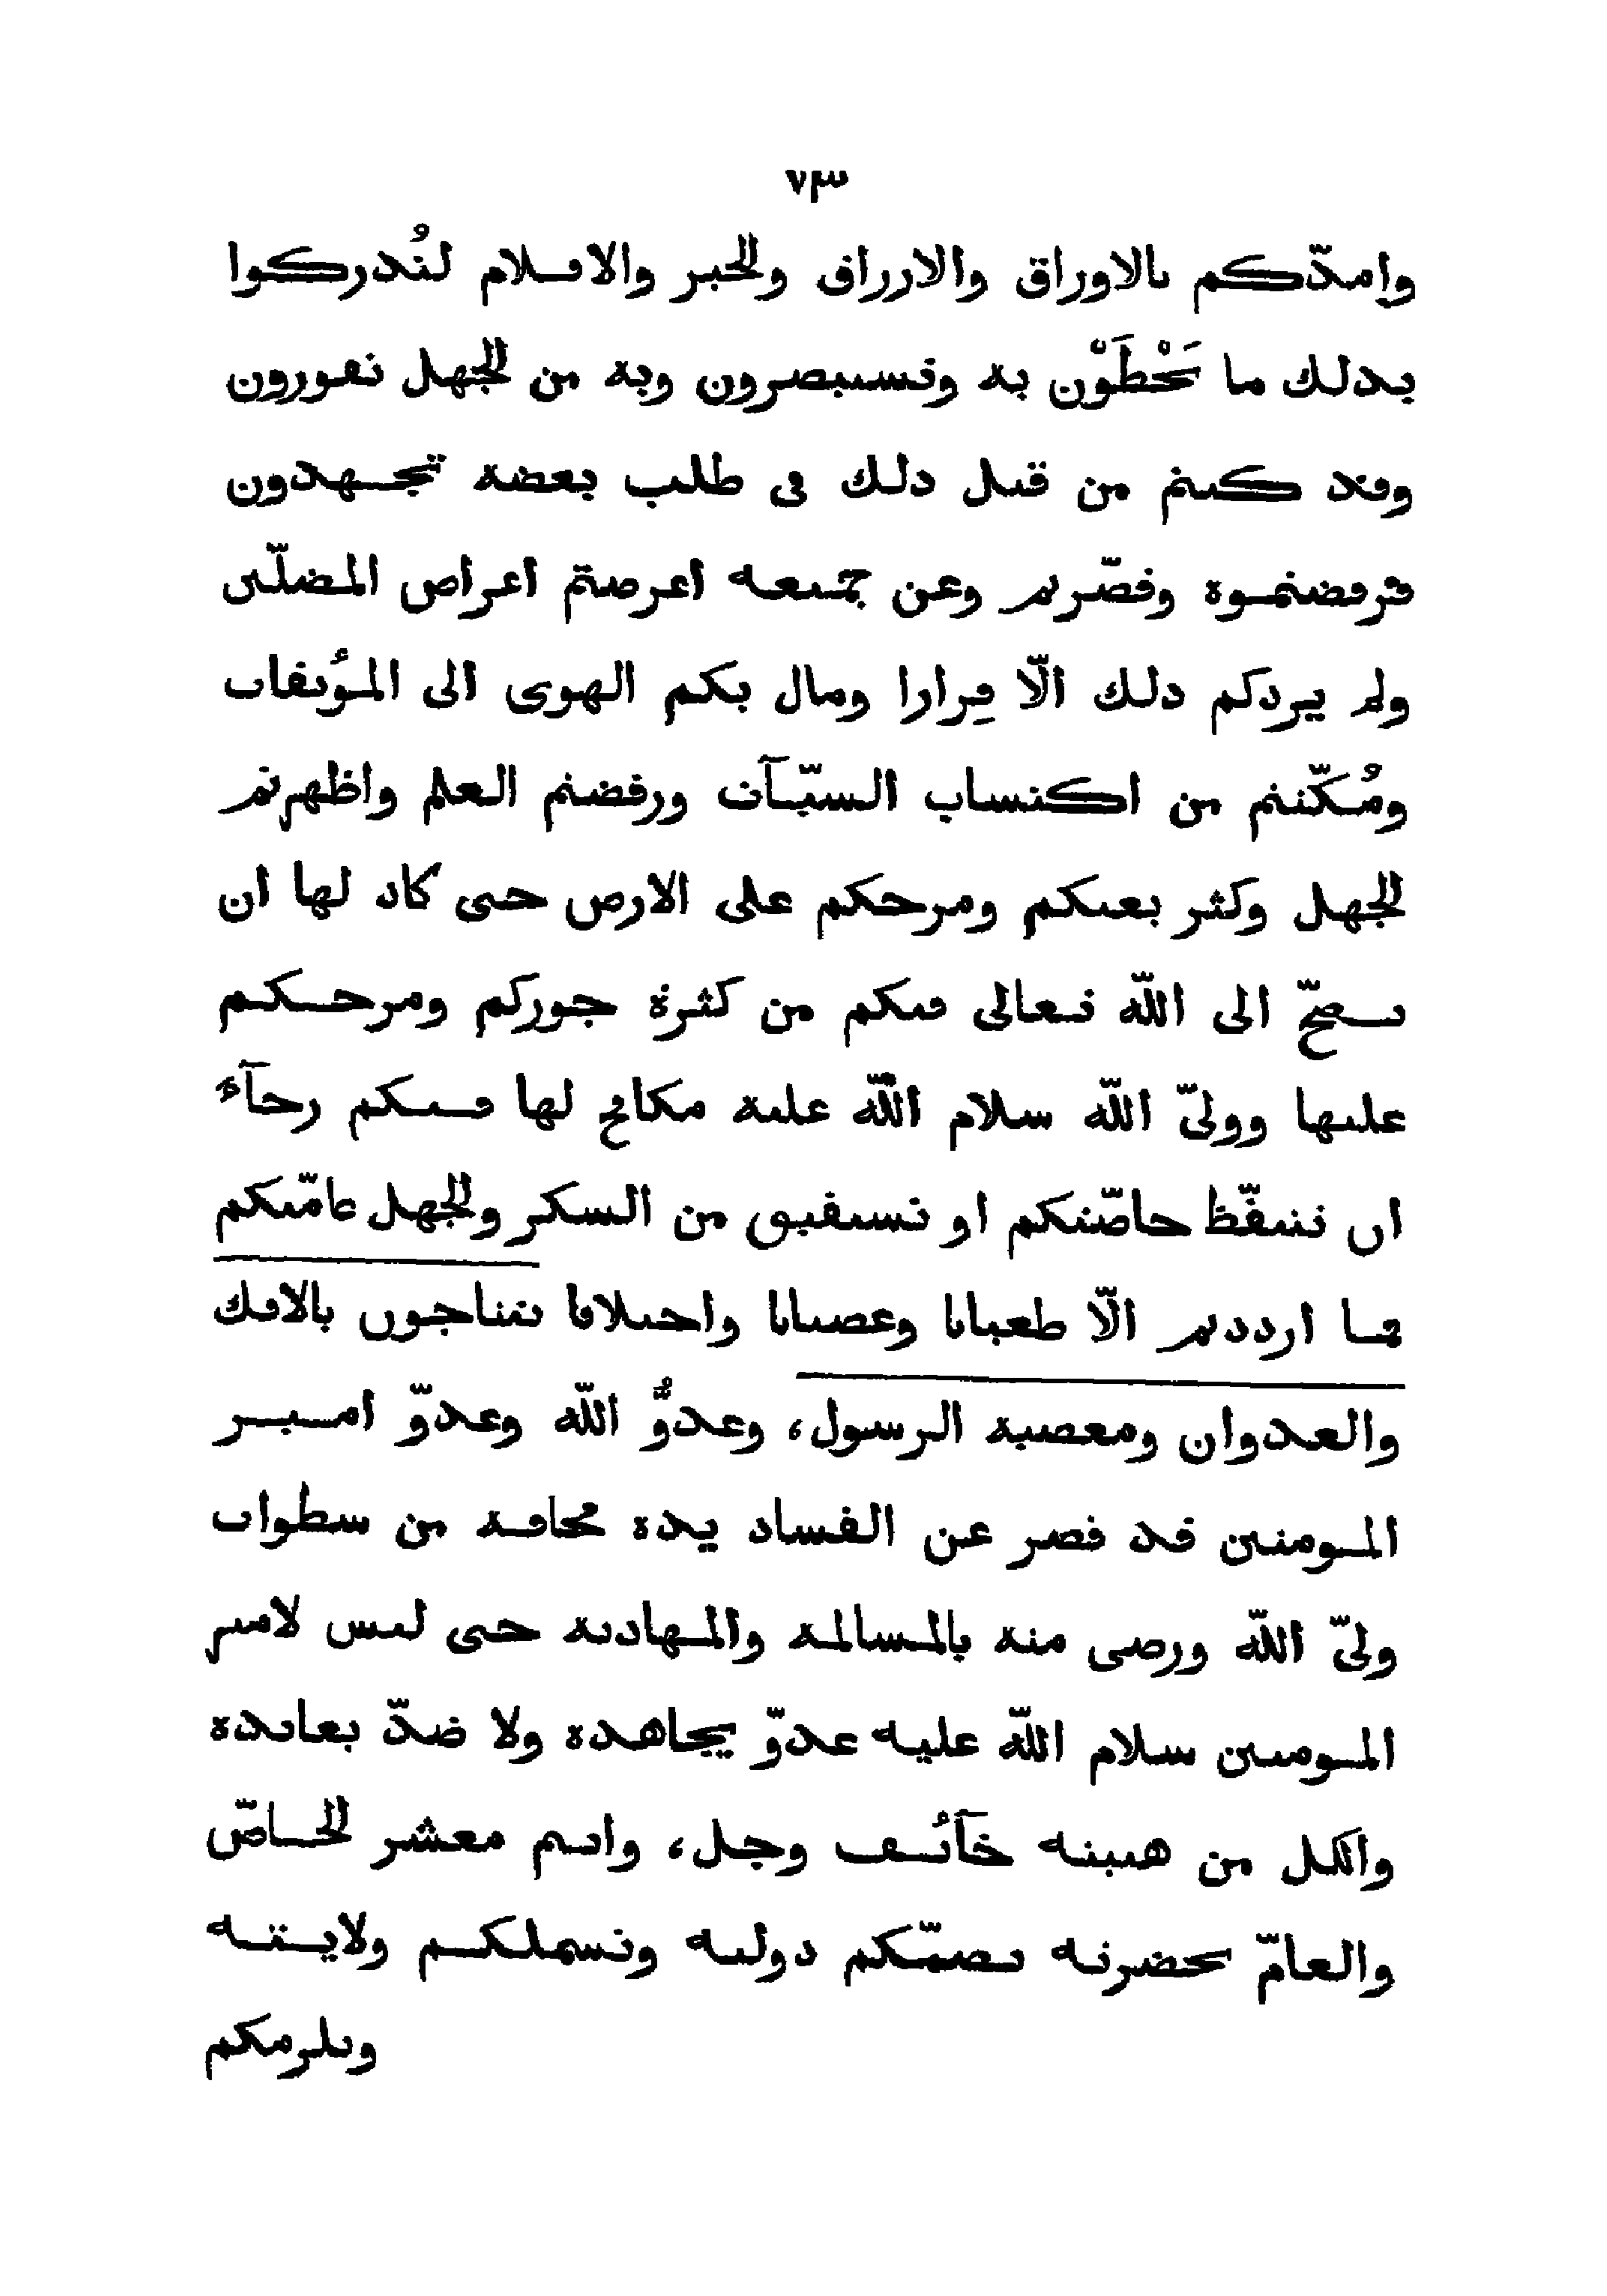 ٧٣
وامدّكم بالاوراق والارزاق والحبر والاقلام لتُدركوا
بذلك ما تَحْظَوْن به وتستبصرون وبه من الجهل تفورون
وقد كنتم من قبل ذلك فى طلب بعضه تجهدون
فرفضتموه وقصّرتم وعن جميعه اعرضتم اعراض المضلّين
ولم يزدكم ذلك الّا فِرارا ومال بكم الهوى الى المؤبقات
ومُكّنتم من اكتساب السيّآت ورفضتم العلم واظهرتم
الجهل وكثر بغيكم ومرحكم على الارض حتى كاد لها ان
تضجّ الى اللّه تعالى فيكم من كثرة جوركم ومرحكم
عليها ووليّ اللّه سلام اللّه عليه مكافح لها فيكم رجآء
ان تتيقّظ خاصّتكم او تستفيق من السكر والجهل عامّتكم
فما ازددتم الّا طغيانا وعصيانا واختلافا تتناجون بالافك
والعدوان ومعصية الرسول، وعدوُّ اللّه وعدوّ امير
المومنين قد قصر عن الفساد يده مخافة من سطوات
وليّ اللّه ورضى منه بالمسالمة والمهادنة حتى ليس لامير
المومنين سلام اللّه عليه عدوّ يجاهده ولا ضدّ يعانده
والكل من هيبته خآئف وجل، وانتم معشر الخاصّ
والعامّ بحضرته تضمّكم دولته وتشملكم ولايته
وتلزمكم